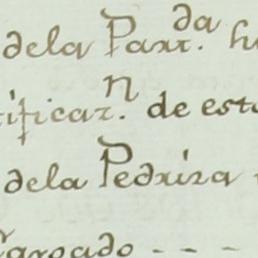 dela Parr.da h
tificaz.n de esta
dela Pedriza
Cargado - - -